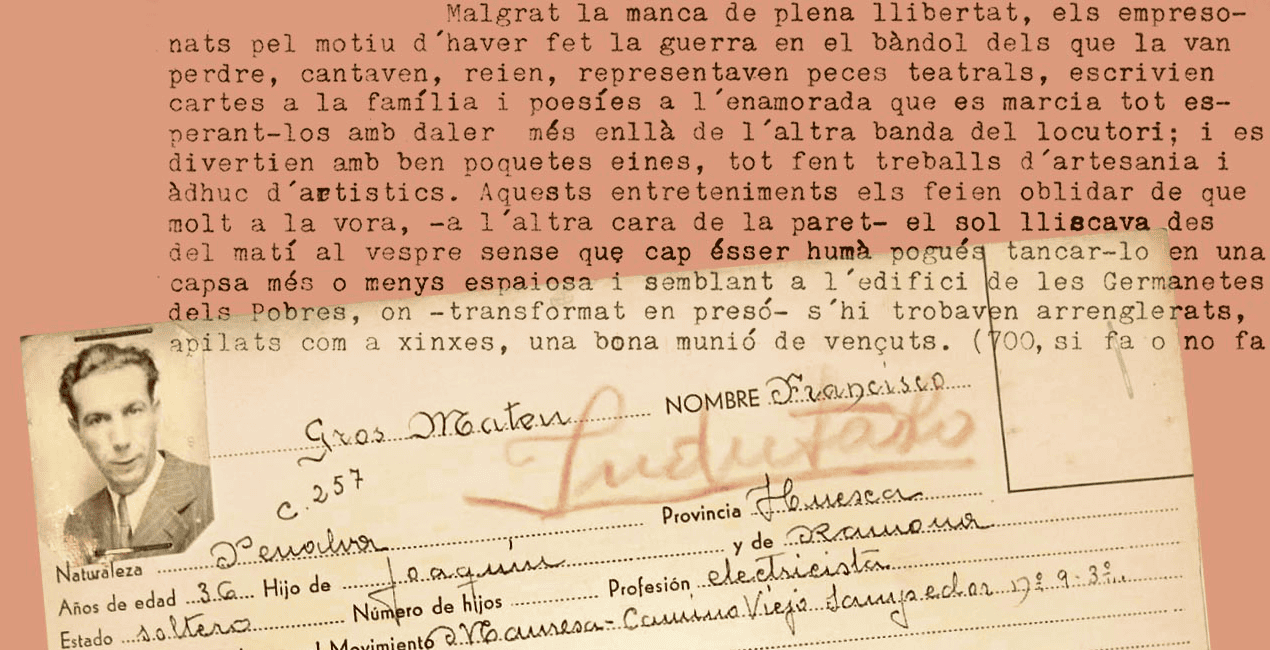 Malgrat la manca de plena llibertat, els empreso-
nats pel motiu d´haver fet la guerra en el bàndol dels que la van
perdre, cantaven, reien, representaven peces teatrals, escrivien
cartes a la família i poesíes a l´enamorada que es marcia tot es-
perant-los amb daler més enllà de l´altra banda del locutori; i es
divertien amb ben poquetes eines, tot fent treballs d´artesania i
àdhuc d´artistics. Aquests entreteniments els feien oblidar de que
molt a la vora, -a l´altra cara de la paret- el sol lliscava des
del matí al vespre sense que cap ésser humà pogués tancar-lo en una
capsa més o menys espaiosa i semblant a l´edifici de les Germanetes
dels Pobres, on -transformat en presó- s´hi trobaven arrenglerats,
apilats com a xinxes, una bona munió de vençuts. (700, si fa o no fa
Gros Mateu NOMBRE Francisco
Indultado
c. 257
Naturaleza Penalva Provincia Huesca
Años de edad 36 Hijo de Joaquín y de Ramona
Estado soltero Número de hijos Profesión electricista
Movimiento Manresa - Camino Viejo Sampedor nº 9-3º